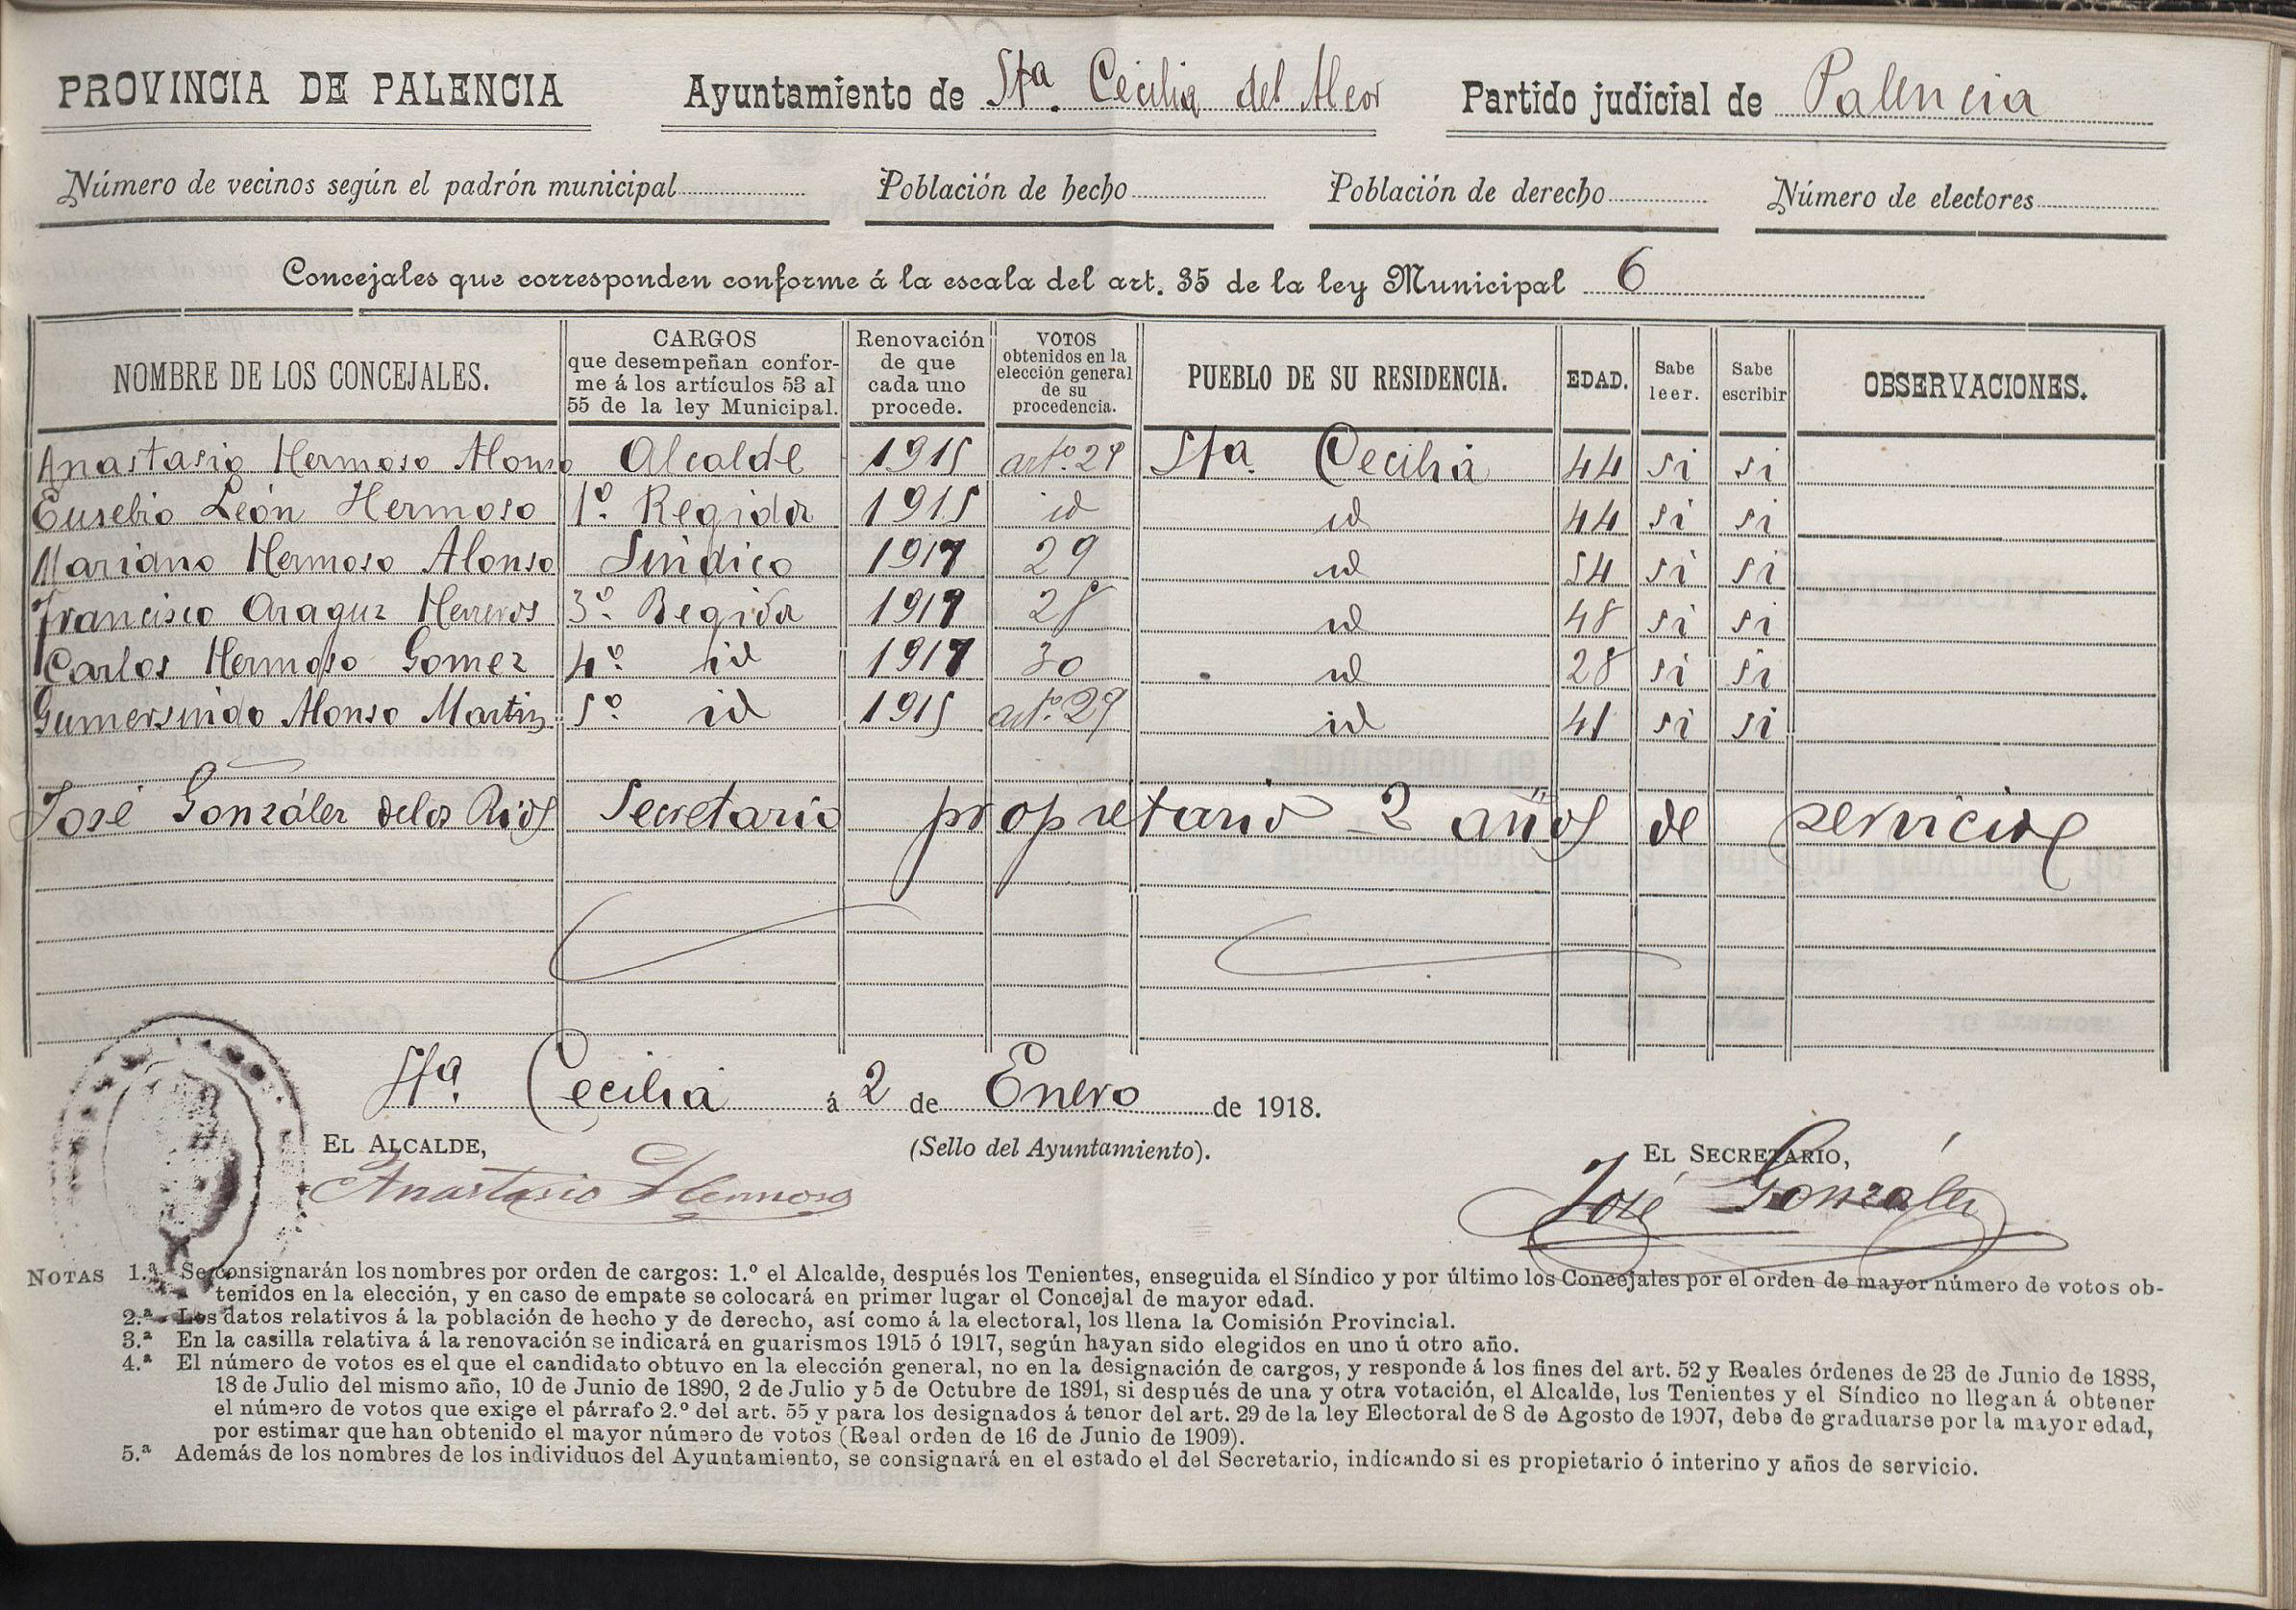 PROVINCIA DE PALENCIA Ayuntamiento de Sta. Cecilia del Alcor Partido judicial de Palencia
Número de vecinos según el padrón municipal Población de hecho Población de derecho Número de electores
Concejales que corresponden conforme á la escala del art. 35 de la ley Municipal 6
NOMBRE DE LOS CONCEJALES. CARGOS que desempeñan confor-me á los artículos 53 al 55 de la ley Municipal. Renovación de que cada uno procede. VOTOS obtenidos en la elección general de su procedencia. PUEBLO DE SU RESIDENCIA. EDAD. Sabe leer. Sabe escribir OBSERVACIONES.
Anastasio Hermoso Alonso Alcalde 1915 arto. 29 Sta. Cecilia 44 si si
Eusebio León Hermoso 1º. Regidor 1915 id id 44 si si
Mariano Hermoso Alonso Sindico 1917 29 id 54 si si
Francisco Araguz Herreros 3º. Regidor 1917 28 id 48 si si
Carlos Hermoso Gomez 4º. id 1917 30 id 28 si si
Gumersindo Alonso Martin 5º id 1915 arto. 29 id 41 si si
José González de los Rios Secretario propietario 2 años de servicios
Sta. Cecilia á 2 de Enero de 1918.
EL ALCALDE, (Sello del Ayuntamiento). EL SECRETARIO,
Anastasio Hermoso José González
NOTAS 1.ª Se consignarán los nombres por orden de cargos: 1.º el Alcalde, después los Tenientes, enseguida el Síndico y por último los Concejales por el orden de mayor número de votos ob-
tenidos en la elección, y en caso de empate se colocará en primer lugar el Concejal de mayor edad.
2.ª Los datos relativos á la población de hecho y de derecho, así como á la electoral, los llena la Comisión Provincial.
3.ª En la casilla relativa á la renovación se indicará en guarismos 1915 ó 1917, según hayan sido elegidos en uno ú otro año.
4.ª El número de votos es el que el candidato obtuvo en la elección general, no en la designación de cargos, y responde á los fines del art. 52 y Reales órdenes de 23 de Junio de 1888,
18 de Julio del mismo año, 10 de Junio de 1890, 2 de Julio y 5 de Octubre de 1891, si después de una y otra votación, el Alcalde, los Tenientes y el Síndico no llegan á obtener
el número de votos que exige el párrafo 2.º del art. 55 y para los designados á tenor del art. 29 de la ley Electoral de 8 de Agosto de 1907, debe de graduarse por la mayor edad,
por estimar que han obtenido el mayor número de votos (Real orden de 16 de Junio de 1909).
5.ª Además de los nombres de los individuos del Ayuntamiento, se consignará en el estado el del Secretario, indicando si es propietario ó interino y años de servicio.